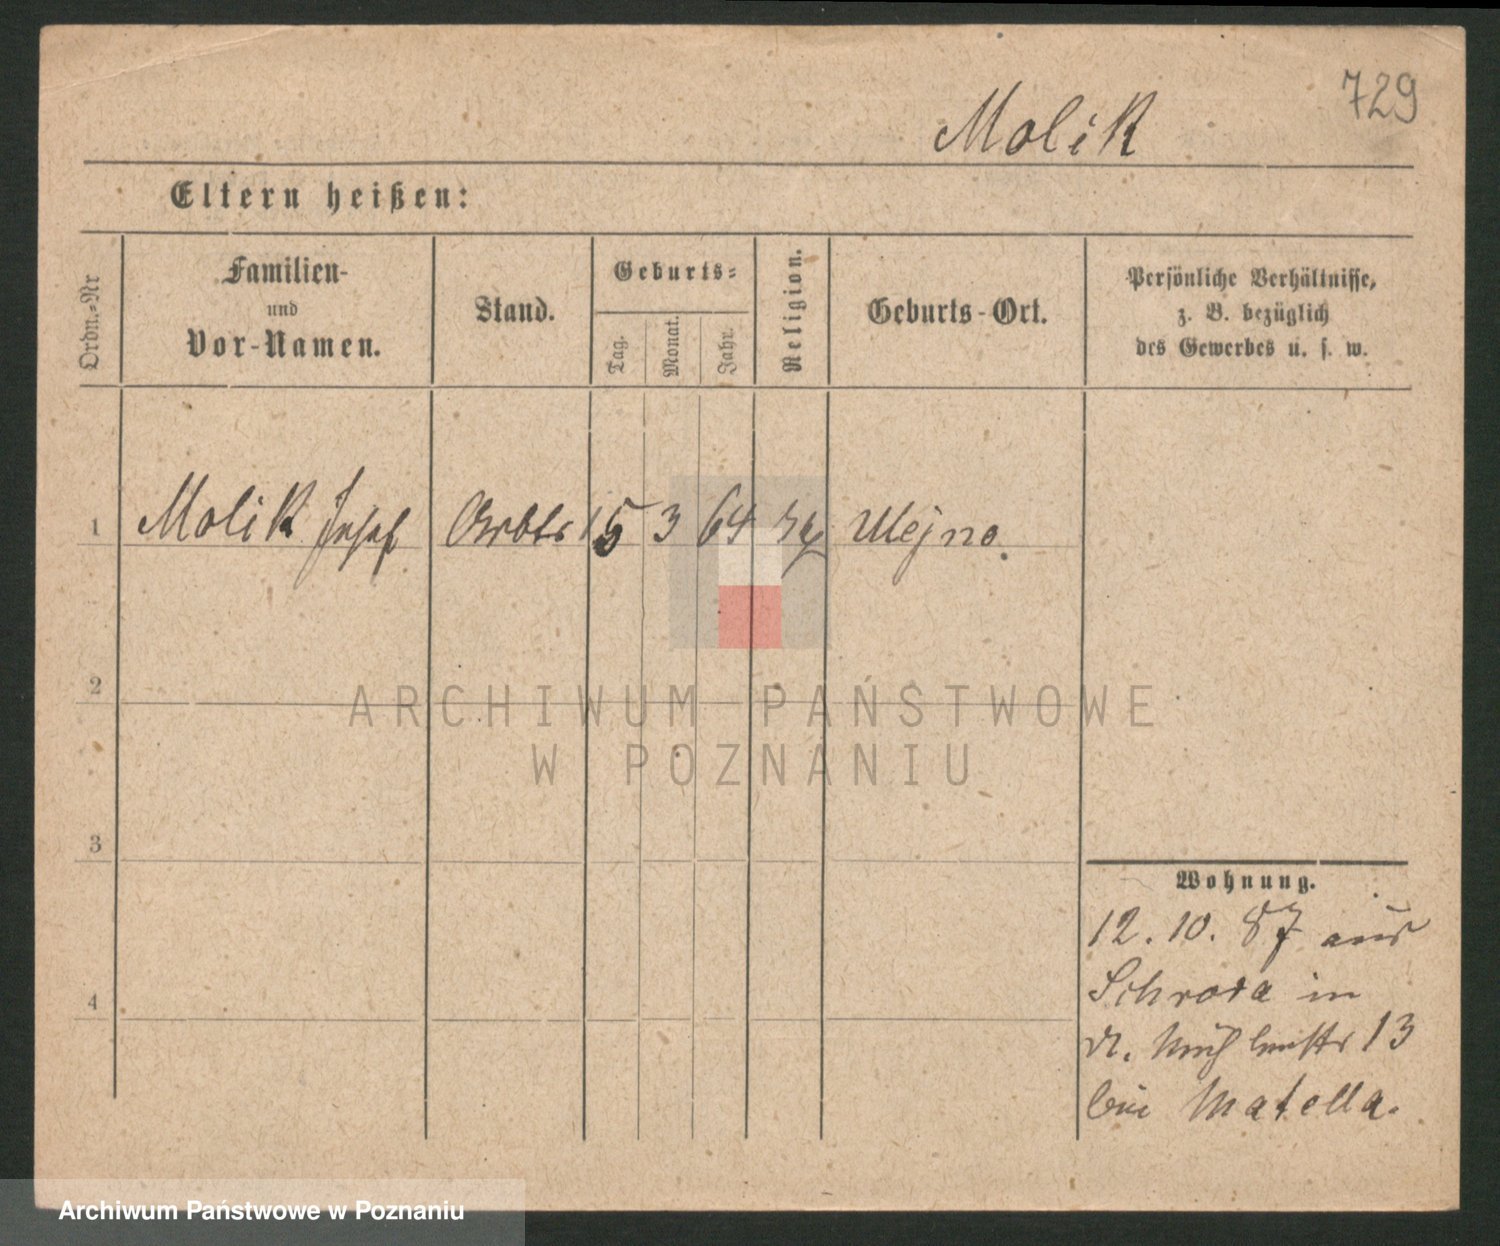 729
Molik
Eltern heißen:
Ordn.-Nr
Familien-
und
Vor-Namen.
Stand.
Geburts-
Tag.
Monat.
Jahr.
Religion.
Geburts-Ort.
Persönliche Verhältnisse,
z. B. bezüglich
des Gewerbes u. s. w.
1 Molik Josef Arbtr 15 3 64 Ulejno.
2
3
4
Wohnung.
12. 10. 87 aus
Schroda in
Mühlenstr 13
bei Matella.
ARCHIWUM PAŃSTWOWE
W POZNANIU
Archiwum Państwowe w Poznaniu